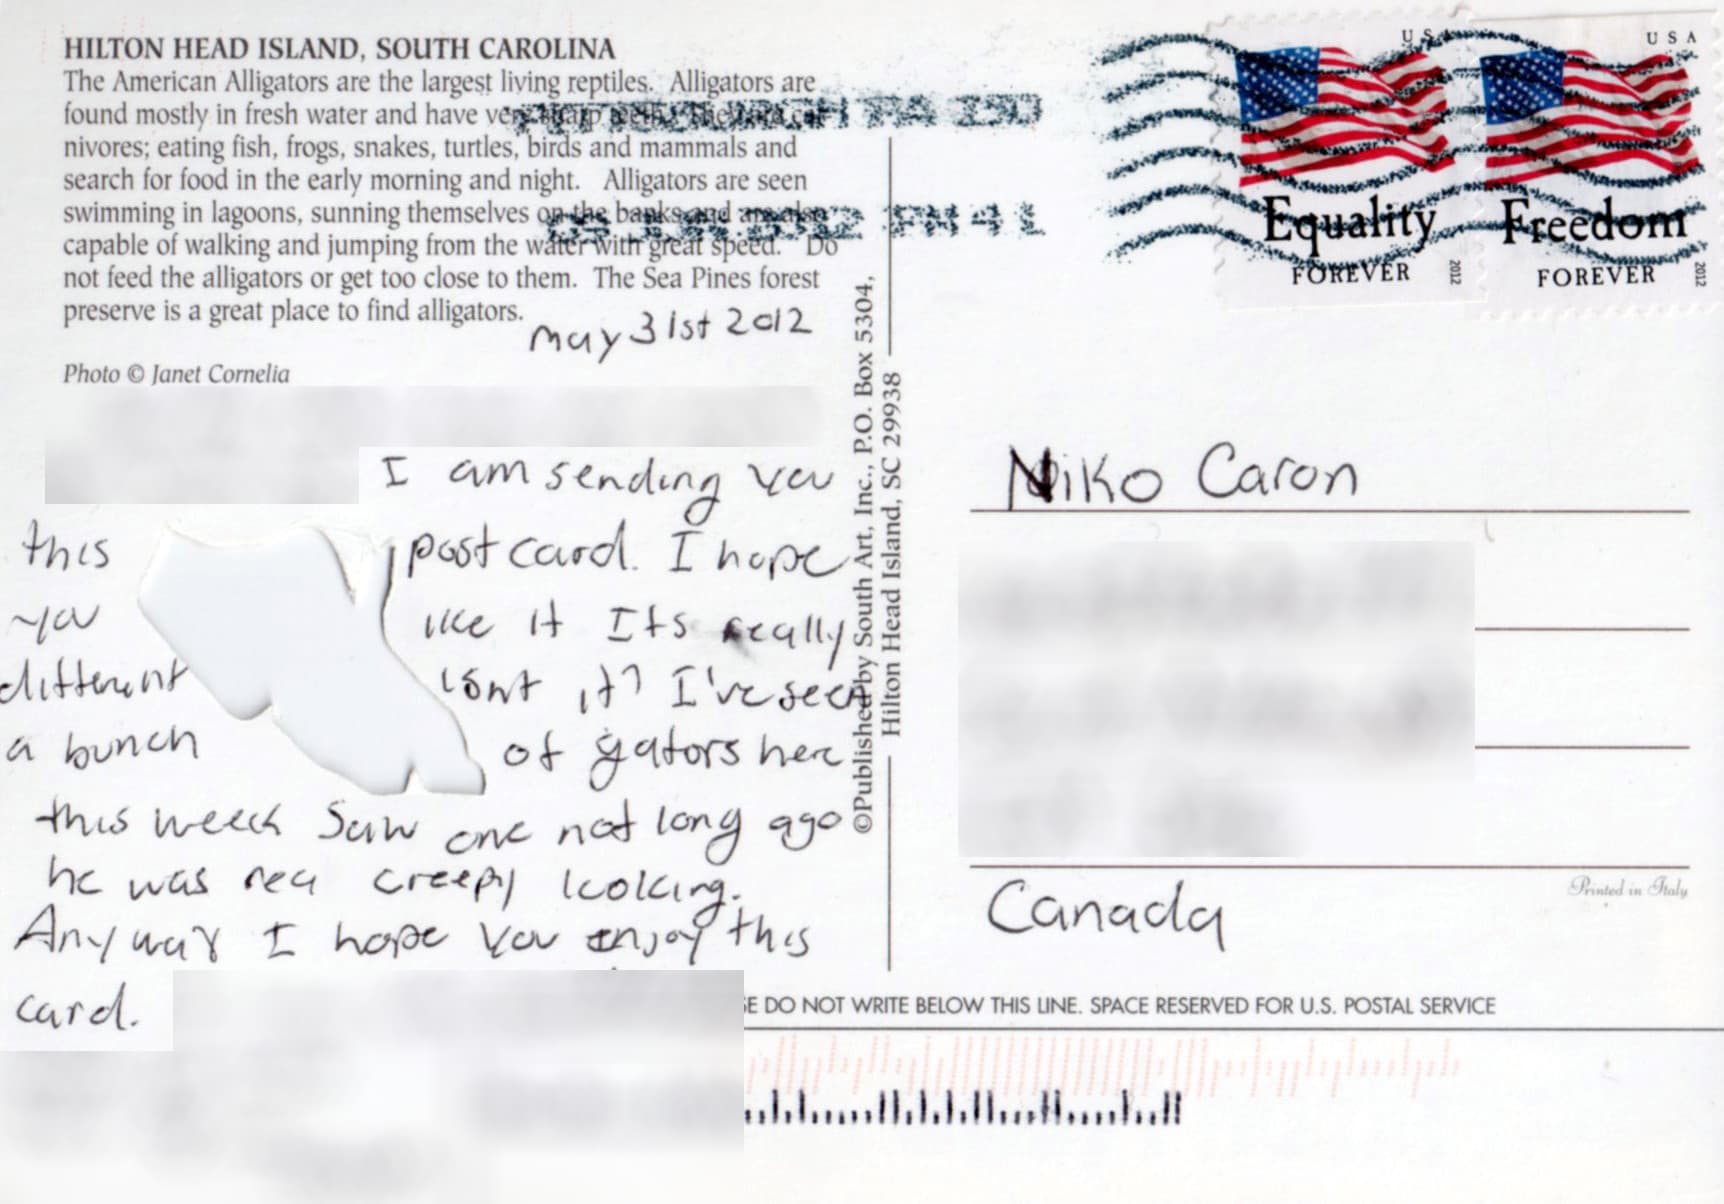 HILTON HEAD ISLAND, SOUTH CAROLINA
The American Alligators are the largest living reptiles. Alligators are
found mostly in fresh water and have very sharp teeth. They are car-
nivores; eating fish, frogs, snakes, turtles, birds and mammals and
search for food in the early morning and night. Alligators are seen
swimming in lagoons, sunning themselves on the banks and are also
capable of walking and jumping from the water with great speed. Do
not feed the alligators or get too close to them. The Sea Pines forest
preserve is a great place to find alligators.
may 31st 2012
Photo © Janet Cornelia
I am sending you
this postcard. I hope
you like it Its really
different isnt it? I've seen
a bunch of gators here
this week Saw one not long ago
he was creepy looking.
Anyway I hope you enjoy this
card.
©Published by South Art, Inc., P.O. Box 5304,
Hilton Head Island, SC 29938
PA 150
PM 4 L
USA
Equality
FOREVER
2012
USA
Freedom
FOREVER
2012
Niko Caron
Canada
Printed in Italy
DO NOT WRITE BELOW THIS LINE. SPACE RESERVED FOR U.S. POSTAL SERVICE